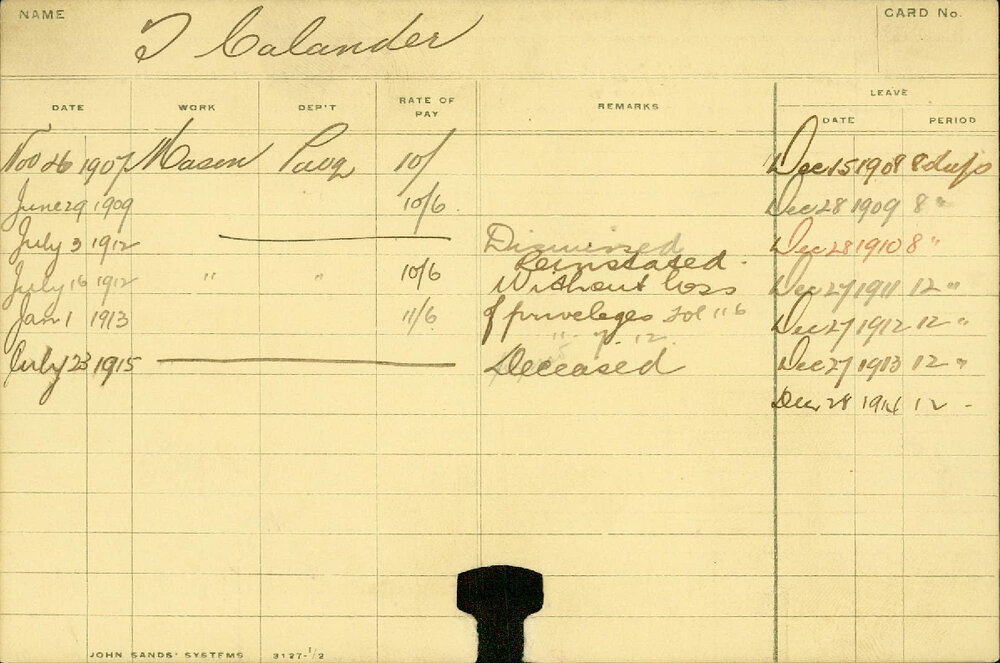 NAME
T Calander
CARD No.
DATE WORK DEP'T RATE OF PAY REMARKS LEAVE
DATE PERIOD
Nov 26 1907 Mason Pavg 10/ Dec 15 1908 8 days
June 29 1909 10/6 Dec 28 1909 8 "
July 3 1912 Dismissed Dec 28 1910 8 "
Reinstated.
July 16 1912 " " 10/6 Without loss Dec 27 1911 12 "
Jan 1 1913 11/6 of priveleges fol 116 Dec 27 1912 12 "
11. 7. 12.
July 23 1915 Deceased Dec 27 1913 12 "
Dec 28 1914 12 -
JOHN SANDS' SYSTEMS 3127-1/2